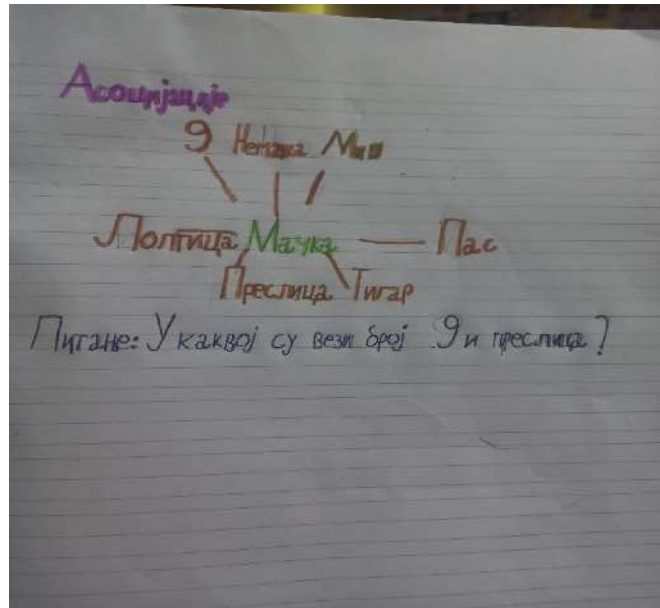 Асоцијације
9 Немачка Миш
Лоптица Мачка Пас
Преслица Тигар
Питање: У каквој су вези број 9 и преслица?